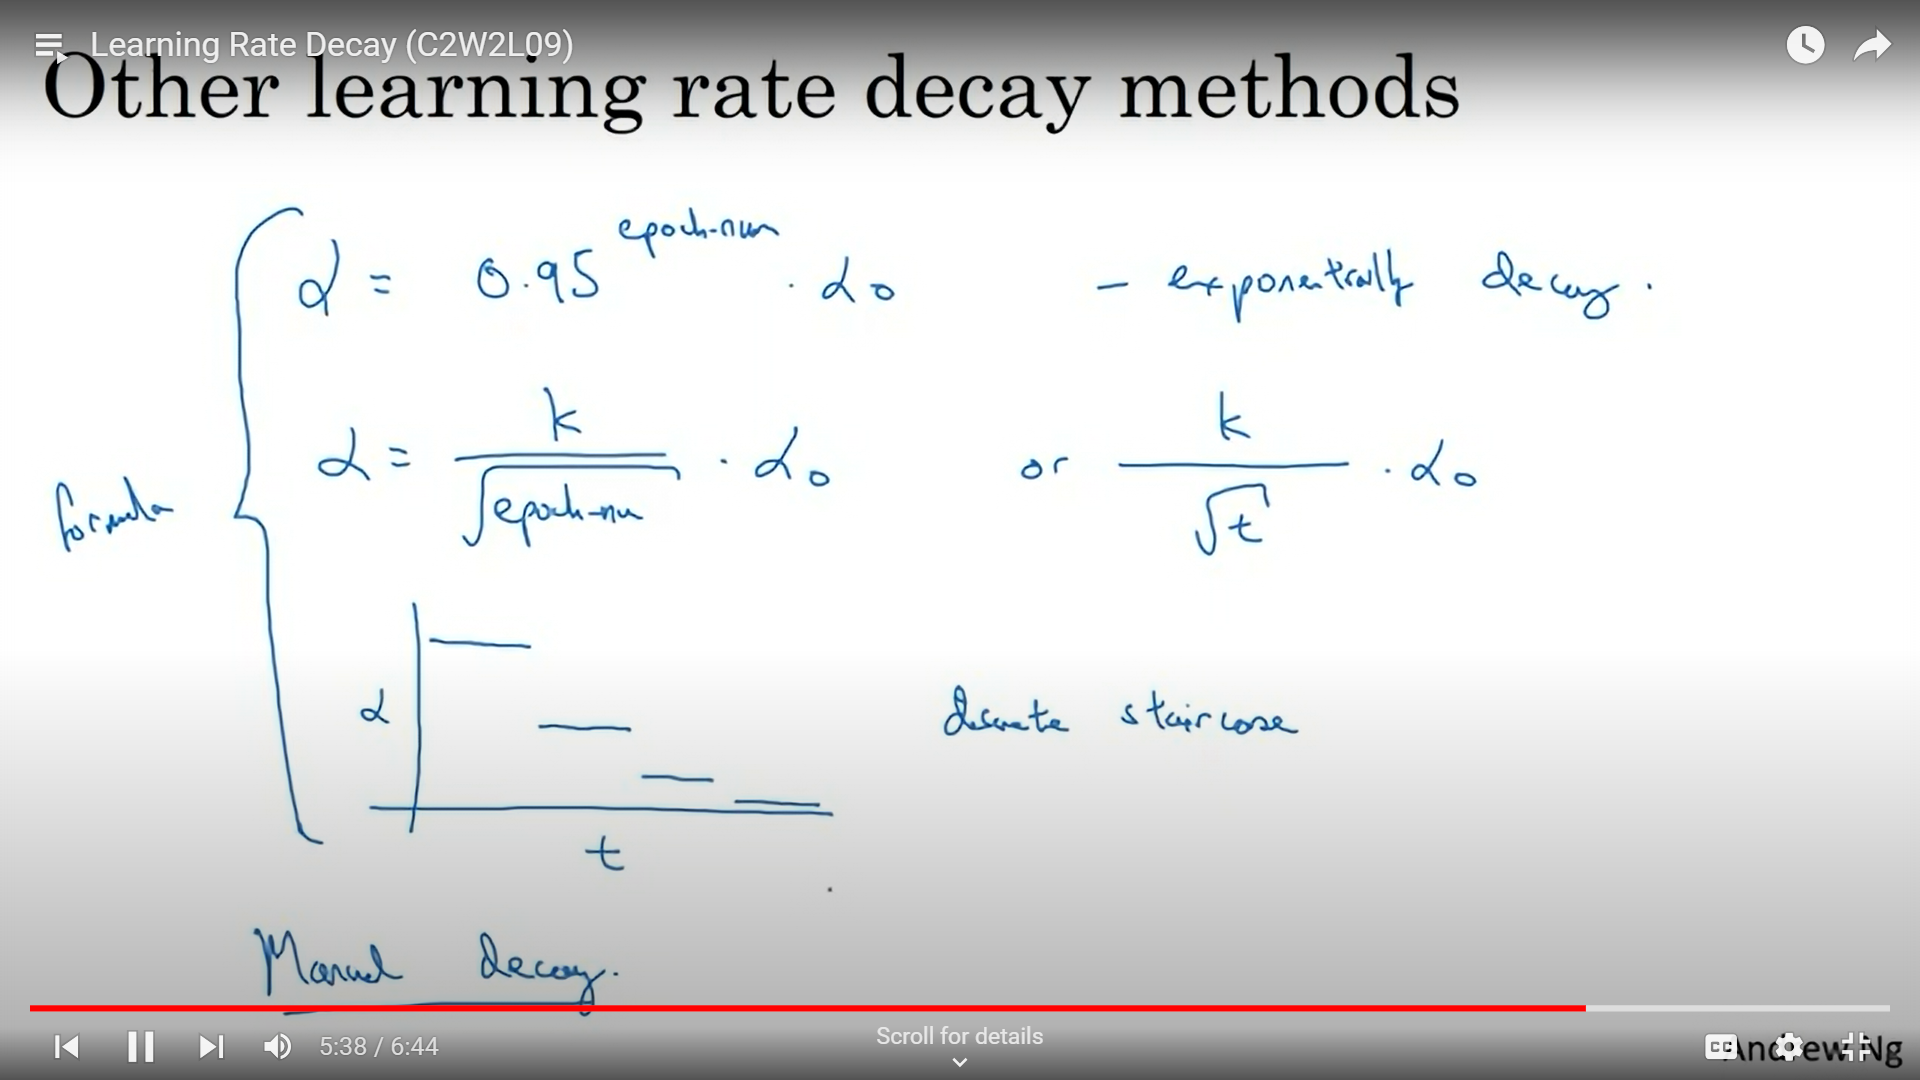 Learning Rate Decay (C2W2L09)
Other learning rate decay methods
α = 0.95^epoch-num · α₀ - exponentially decay.
α = k/√epoch-num · α₀ or k/√t · α₀
formula
α
discrete staircase
t
Manual decay.
5:38 / 6:44
Scroll for details
CC
Andrew Ng